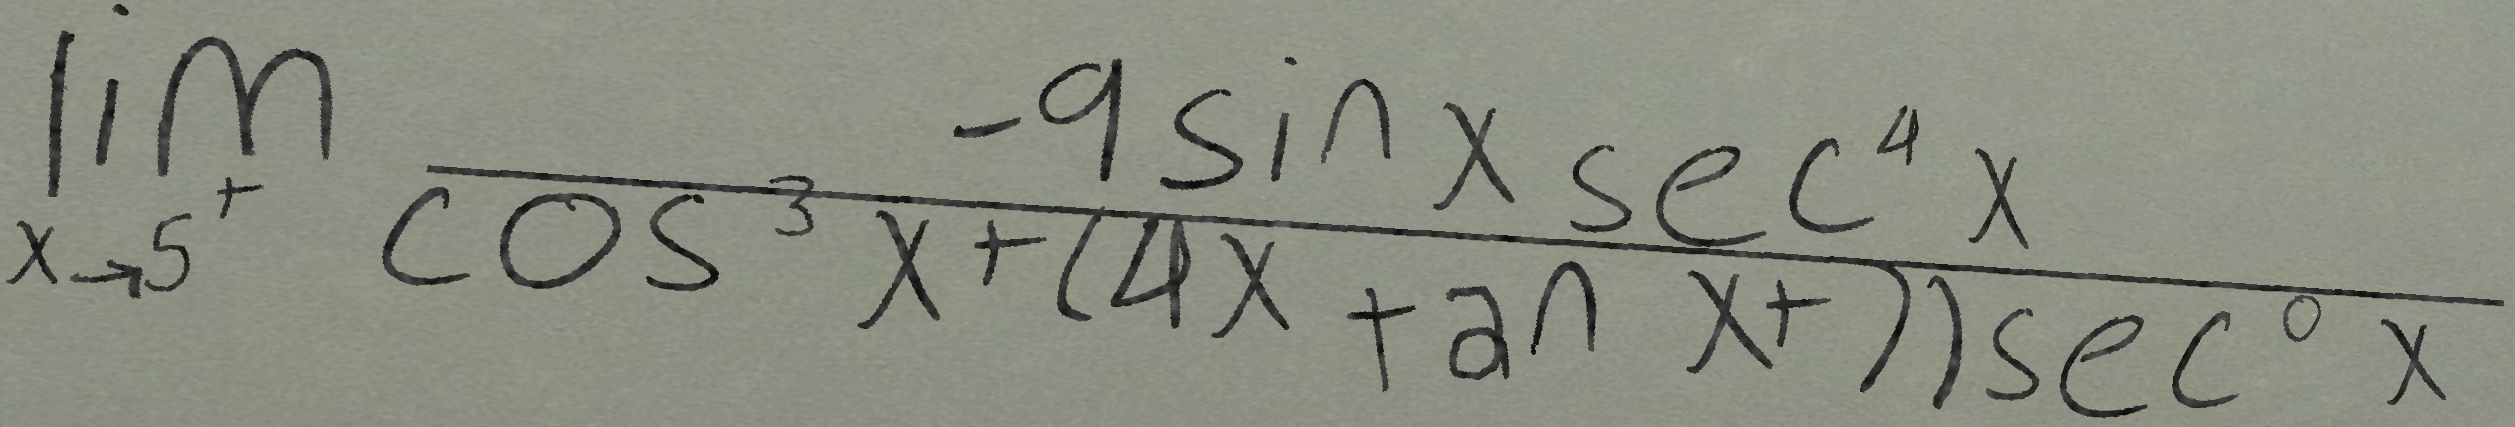 \lim_{x \to 5^+} \frac{-9 \sin x \sec^4 x}{\cos^3 x + (4x \tan x + 7) \sec^0 x}